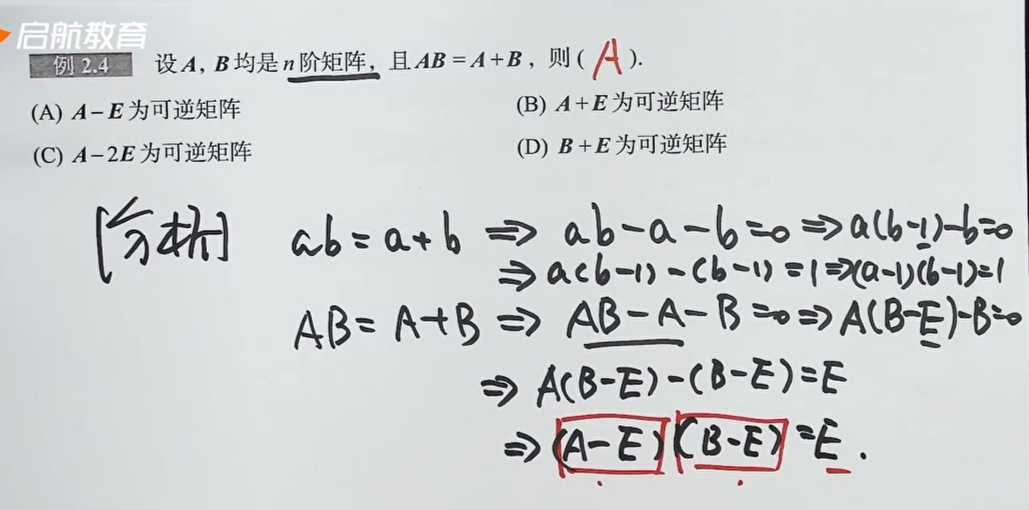 启航教育
例 2.4 设 A, B 均是 n 阶矩阵, 且 AB = A + B, 则 ( A ).
(A) A - E 为可逆矩阵 (B) A + E 为可逆矩阵
(C) A - 2E 为可逆矩阵 (D) B + E 为可逆矩阵
[分析] ab = a + b ⇒ ab - a - b = 0 ⇒ a(b-1) - b = 0
⇒ a(b-1) - (b-1) = 1 ⇒ (a-1)(b-1) = 1
AB = A + B ⇒ AB - A - B = 0 ⇒ A(B-E) - B = 0
⇒ A(B-E) - (B-E) = E
⇒ (A-E) (B-E) = E .